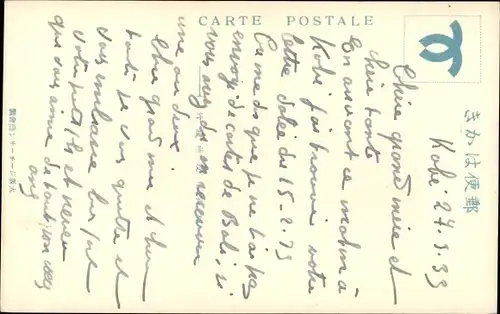 CARTE POSTALE
きかは便郵
Kobé 27.3.33
Chère grand'mère et
chère tante
En arrivant ce matin à
Kobé j'ai trouvé votre
lettre datée du 15-2-33
Tu me dis que je ne t'ai pas
envoyé de cartes de Bali, si
vous avez dû en recevoir
une ou deux.
Chère grand'mère et chère
tante je vous quitte et
vous embrasse
votre petit fils et neveu
qui vous aime de tout son cœur